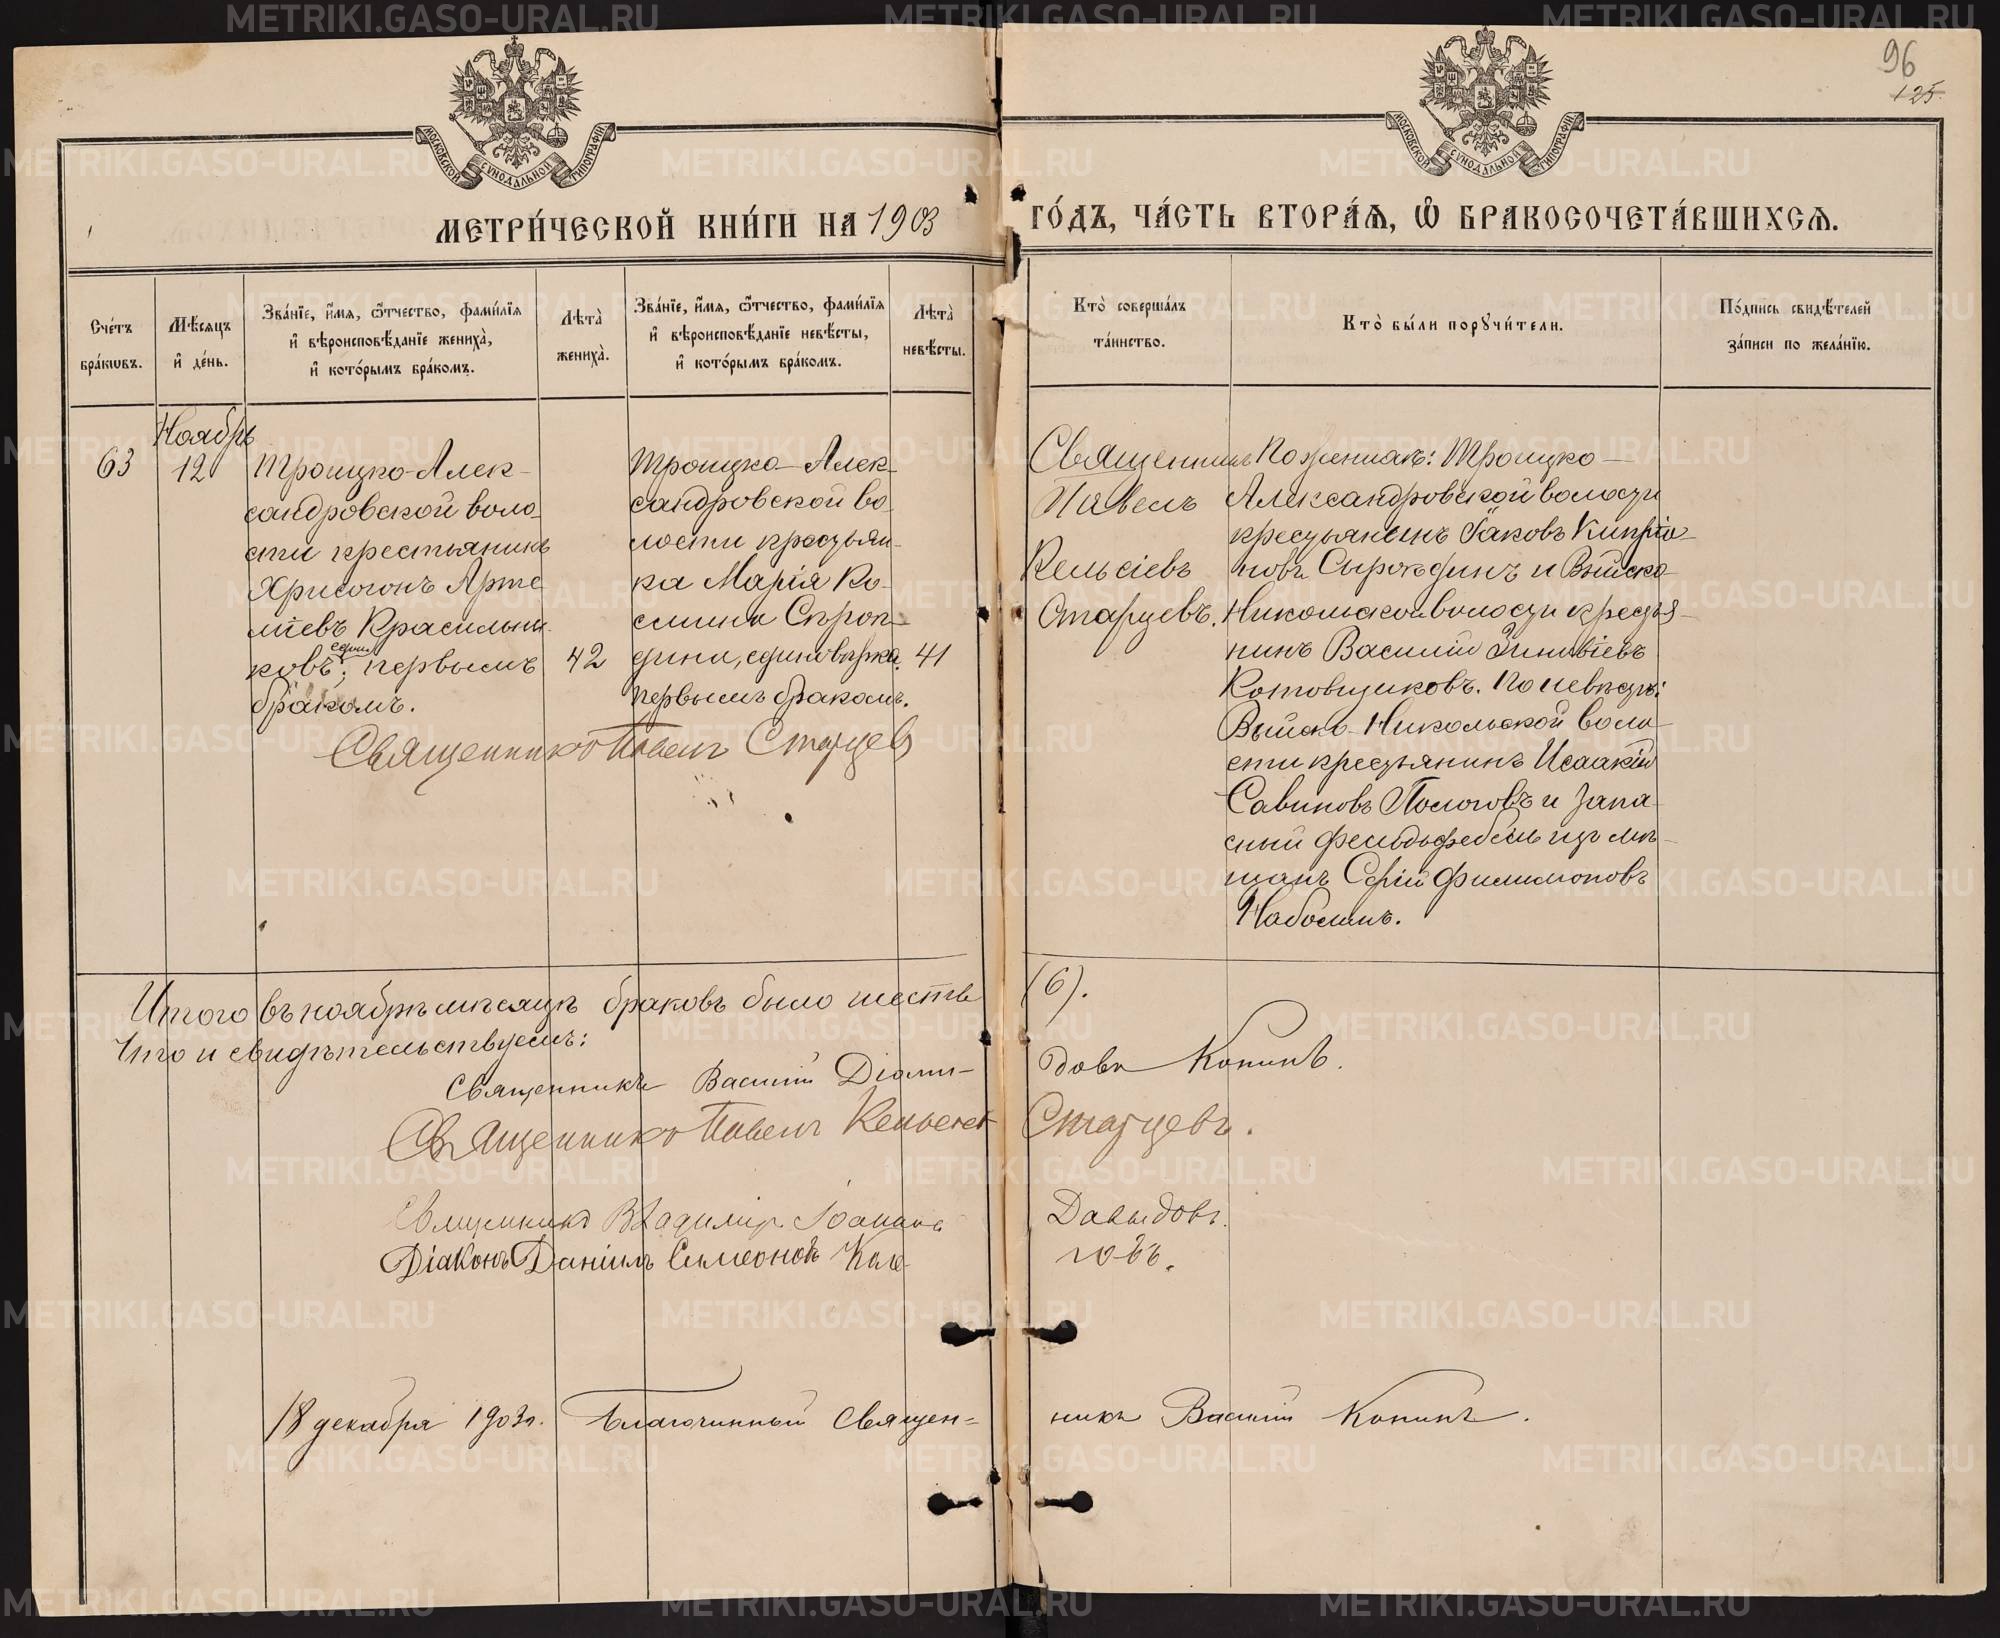 96
125.
МОСКОВСКОЙ СѴНОДАЛЬНОЙ ТИПОГРАФІИ
МОСКОВСКОЙ СѴНОДАЛЬНОЙ ТИПОГРАФІИ
МЕТРИ́ЧЕСКОЙ КНИ́ГИ НА 1903 ГО́ДЪ, ЧА́СТЬ ВТОРА́Ѧ, Ѽ БРАКОСОЧЕТА́ВШИХСѦ.
Сче́тъ
бра́кѡвъ.
Мѣ́сѧцъ
и҆ де́нь.
Зва́нїе, и҆́мѧ, ѻ҆́тчество, фами́лїѧ
и҆ вѣроисповѣ́данїе жениха̀,
и҆ кото́рымъ бра́комъ.
Лѣта̀
жениха̀.
Зва́нїе, и҆́мѧ, ѻ҆́тчество, фами́лїѧ
и҆ вѣроисповѣ́данїе невѣ́сты,
и҆ кото́рымъ бра́комъ.
Лѣта̀
невѣ́сты.
Кто̀ соверша́лъ
та́инство.
Кто̀ бы́ли порꙋчи́тели.
По́дпись свидѣ́телей
за́писи по жела́нїю.
63
Ноябрь
12
Троицко-Алек-
сандровской воло-
сти крестьянинъ
Хрисогонъ Арте
міевъ Красильни
ковъ; един. первымъ
бракомъ.
42
Троицко-Алек-
сандровской во-
лости крестьян-
ка Марія Ко-
смина Сырок-
дина, единовѣрка.
первымъ бракомъ.
41
Священникъ Павелъ Старцев
Священникъ
Павелъ
Кельсіевъ
Старцевъ.
По женихѣ: Троицко-
Александровской волости
крестьянинъ Іаковъ Кипріа-
новъ и Выйско-
Никольской волости крестья-
нинъ Василій Зиновіевъ
Котовщиковъ. По невѣстѣ:
Выйско-Никольской воло-
сти крестьянинъ Исаакій
Савиновъ Пологовъ и запа-
сный фельдфебель изъ мѣ-
щанъ Сергій Филимоновъ
Наболинъ.
Итого въ ноябрѣ мѣсяцѣ браковъ было шесть (6).
Что и свидѣтельствуемъ:
Священникъ Василій Діоми- довъ Конинъ.
Священникъ Павелъ Кельсіев Старцевъ.
Священникъ Владиміръ Іоанновъ Давыдовъ.
Діаконъ Даніилъ Симеоновъ
18 декабря 1903 г. Благочинный Священ= никъ Василій Конинъ.
METRIKI.GASO-URAL.RU